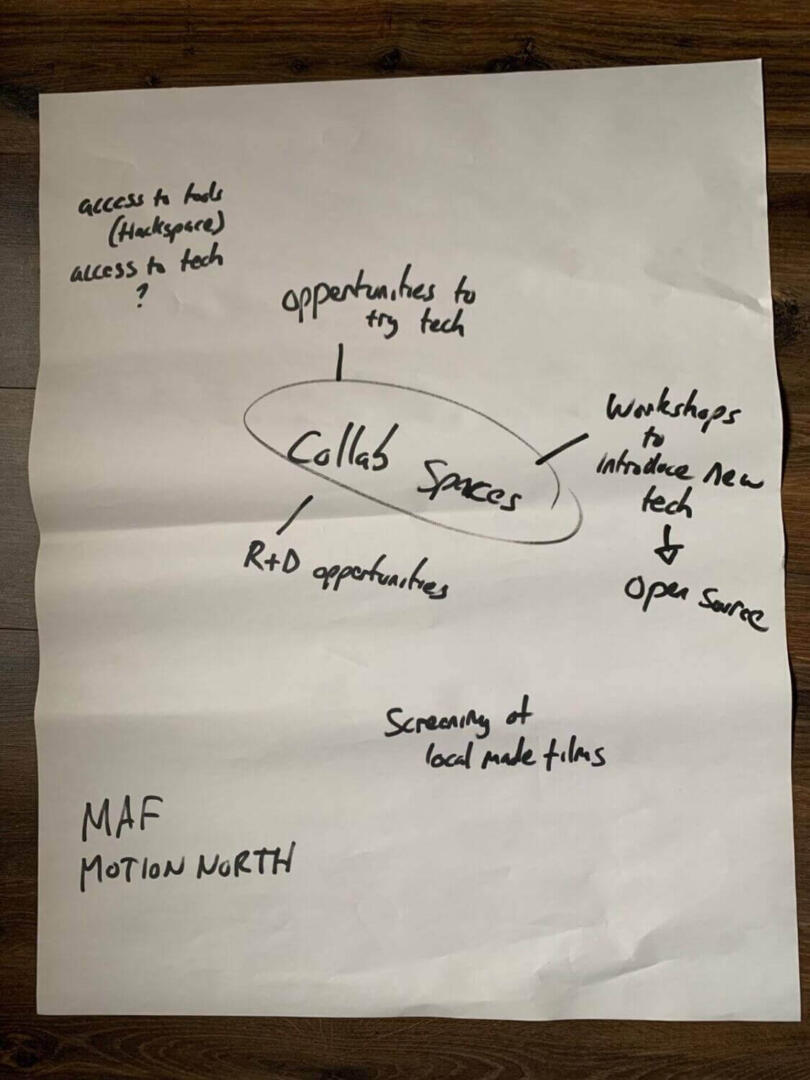 access to tools
(Hackspace)
access to tech
?
oppertunities to
try tech
Collab Spaces
Workshops
to
introduce new
tech
Open Source
R+D oppertunities
Screening of
local made films
MAF
MOTION NORTH